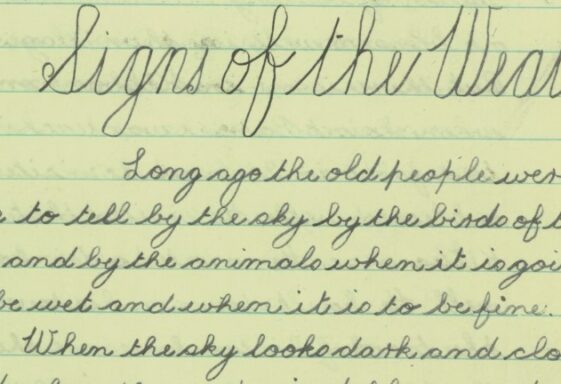 Signs of the Wea
Long ago the old people wer
to tell by the sky by the birds of t
and by the animals when it is goi
be wet and when it is to be fine.
When the sky looks dark and clo